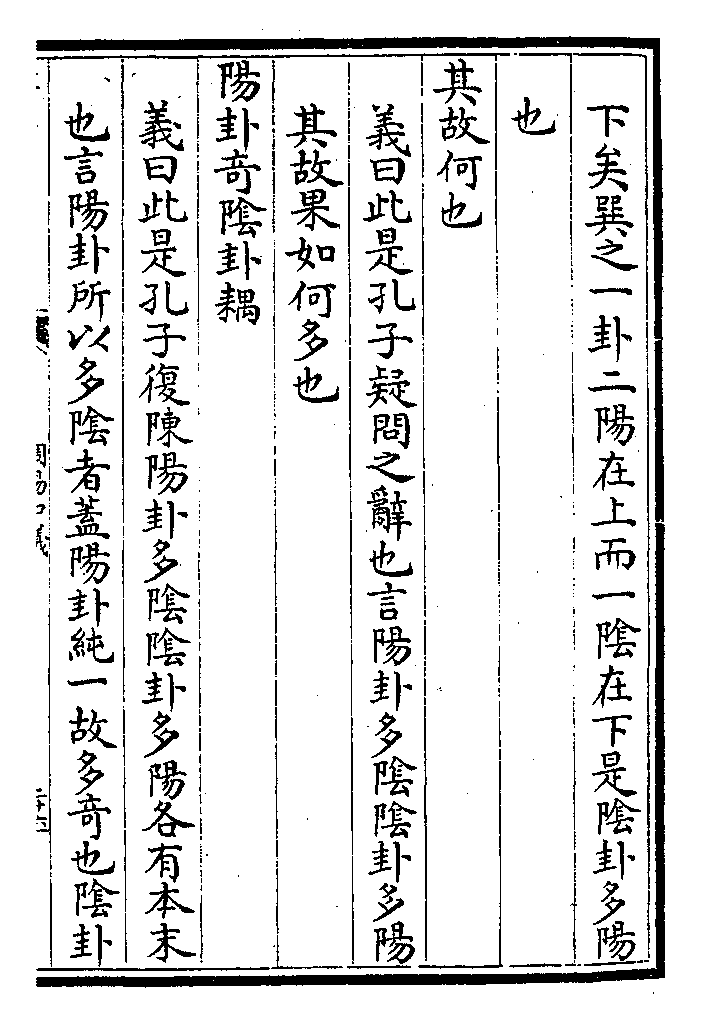 下矣巽之一卦二陽在上而一陰在下是陰卦多陽
也
其故何也
義曰此是孔子疑問之辭也言陽卦多陰陰卦多陽
其故果如何多也
陽卦奇陰卦耦
義曰此是孔子復陳陽卦多陰陰卦多陽各有本末
也言陽卦所以多陰者蓋陽卦純一故多奇也陰卦